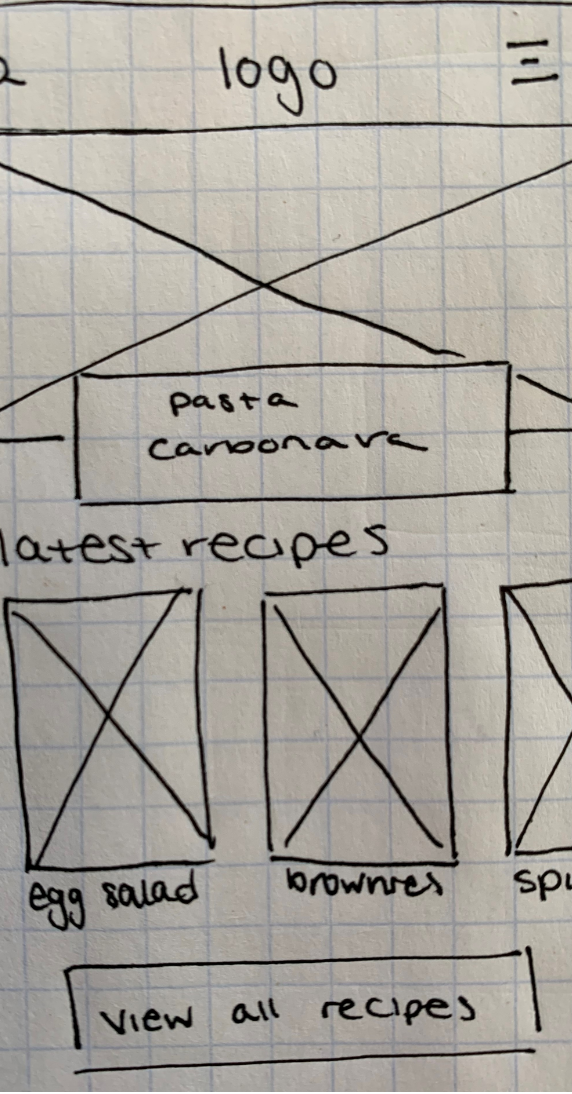 logo
pasta
carbonara
latest recipes
egg salad
brownies
view all recipes